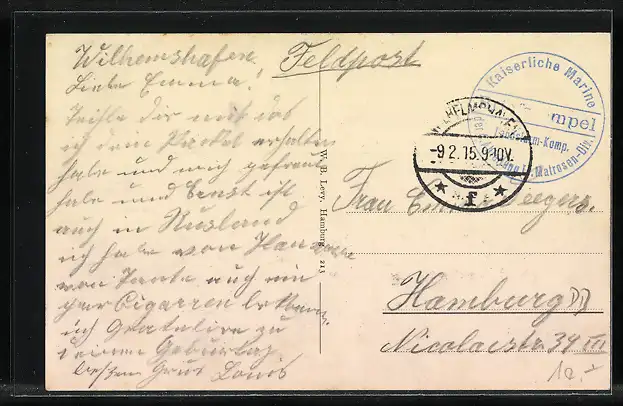 Wilhemshafen.
Liebe Emma!
Teihle dir mit das
ich dein Packet erhalten
habe und mich gefreut
habe und Ernst ist
auch in Rusland
ich habe von
von Tante auch ein
par Cigarren bekomm
ich Gratulire zu
deinen Geburtag.
besten Grus Louis
W. B. Levy, Hamburg. 213
Feldpost
Kaiserliche Marine
mpel
Matrosen-Div.
WILHELMSHAVEN
-9.2.15.9-10V.
* f *
Frau Seegers.
Hamburg
Nicolaistr. 34 III
10.-